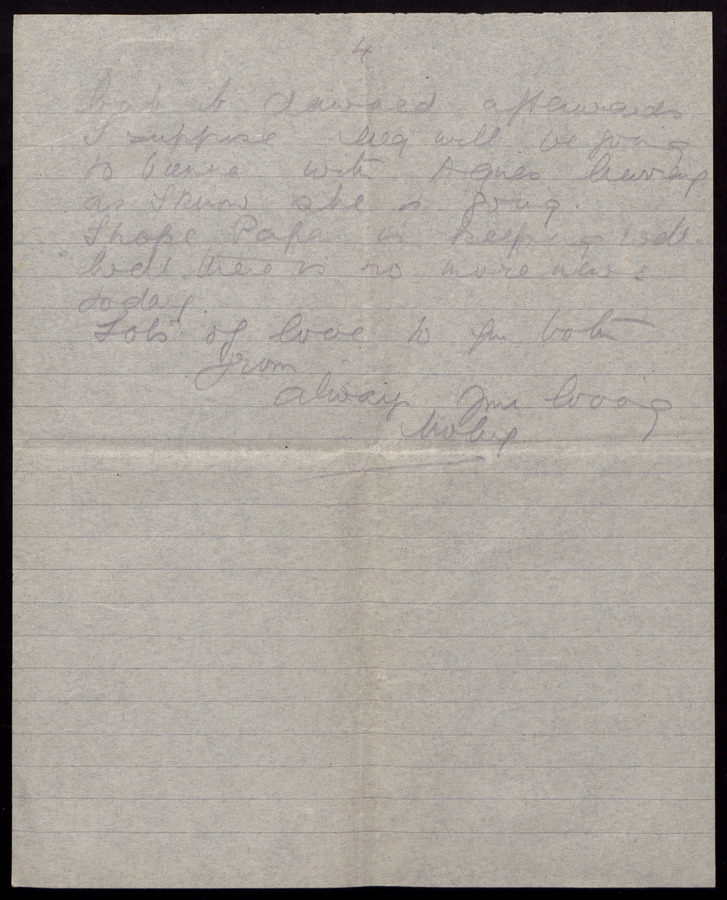 4
back to afterwards
I suppose Meg will be going
to with Agnes
as I know she is going.
I hope Papa is keeping well.
Well there is no more news
today.
Lots of love to you both
from
always your loving